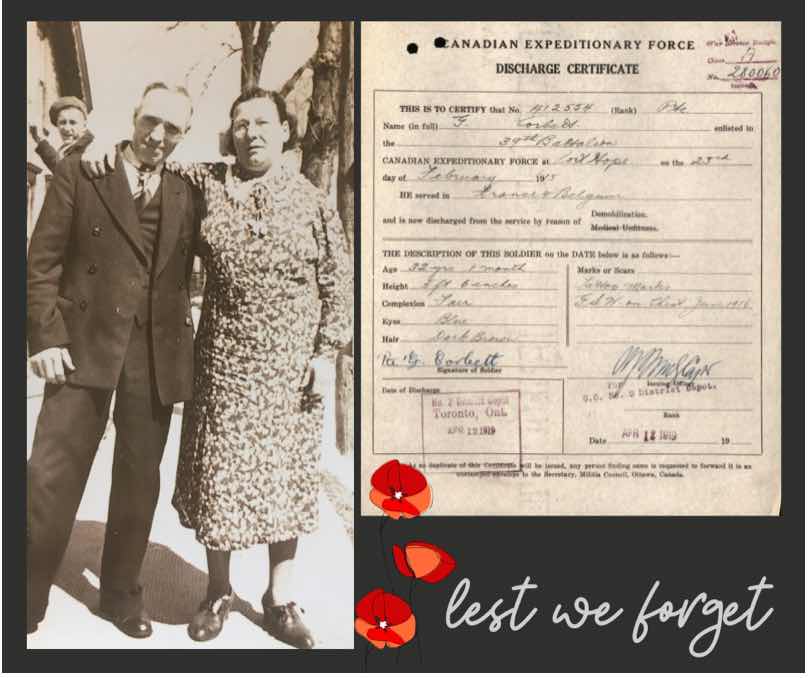 CANADIAN EXPEDITIONARY FORCE
DISCHARGE CERTIFICATE
Class A
No. 280060
THIS IS TO CERTIFY that No. 412554 (Rank) Pte
Name (in full) G. Corbett enlisted in
the 39th Battalion
CANADIAN EXPEDITIONARY FORCE at Port Hope on the 23rd
day of February 1915
HE served in France & Belgium
and is now discharged from the service by reason of Demobilization.
Medical Unfitness.
THE DESCRIPTION OF THIS SOLDIER on the DATE below is as follows:—
Age 32 yrs 1 month
Height 5 ft 6 inches
Complexion Fair
Eyes Blue
Hair Dark Brown
Marks or Scars
Tattoo Marks
G.S.W. on Chest June 1916
G. Corbett
Signature of Soldier
Issuing Officer
For
O.C. No. 2 District Depot.
Rank
Date of Discharge
No. 2 District Depot
Toronto, Ont.
APR 12 1919
Date APR 12 1919 19
no duplicate of this Certificate will be issued, any person finding same is requested to forward it in an
unstamped envelope to the Secretary, Militia Council, Ottawa, Canada.
lest we forget